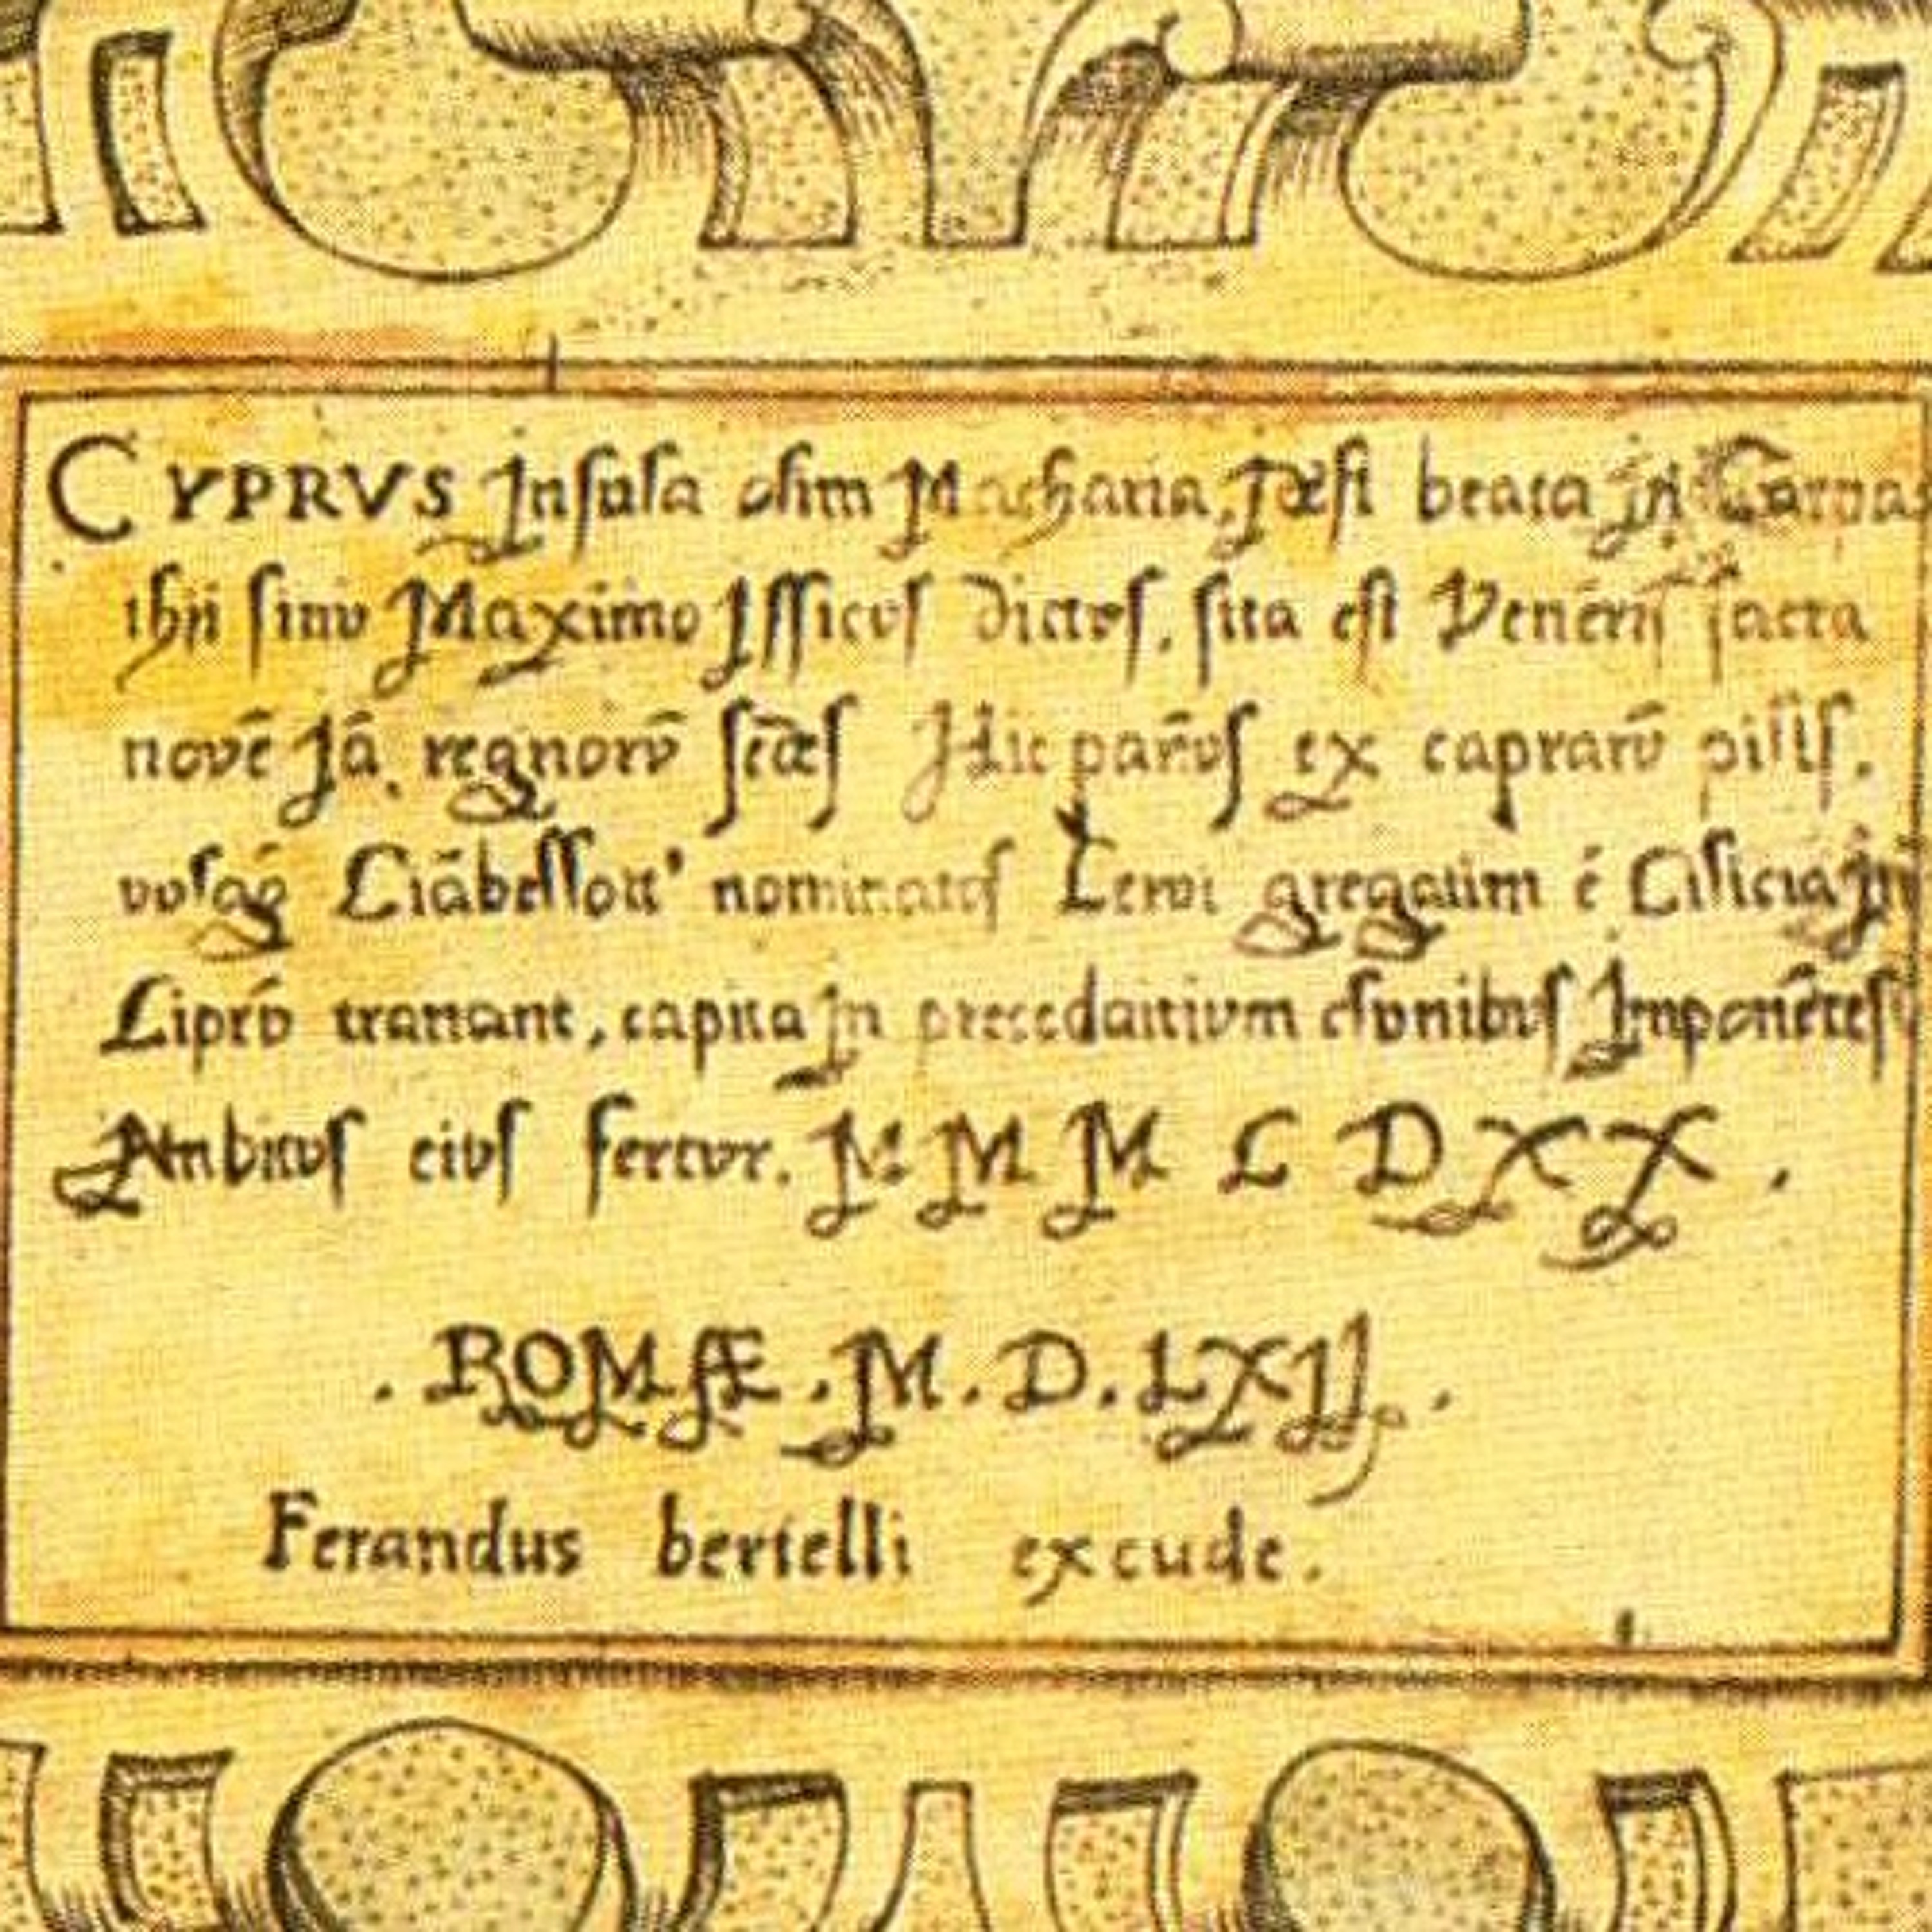 CYPRVS Insula olim Macharia, Id est beata in Carpa
thii sinv Maximo Issicvs dictvs, sita est Veneris sacra
novē Iā, regnorv̄ sedes Hic par̄vs ex caprarv̄ pillis,
nominatvs Cervi gregatim é Cilicia in
Cipró tranant, capita in precedaitivm clvnibvs Imponētes
Ambitvs eivs fertvr. M M M C D X X .
. ROMÆ . M . D . LXII .
Ferandus bertelli excude.